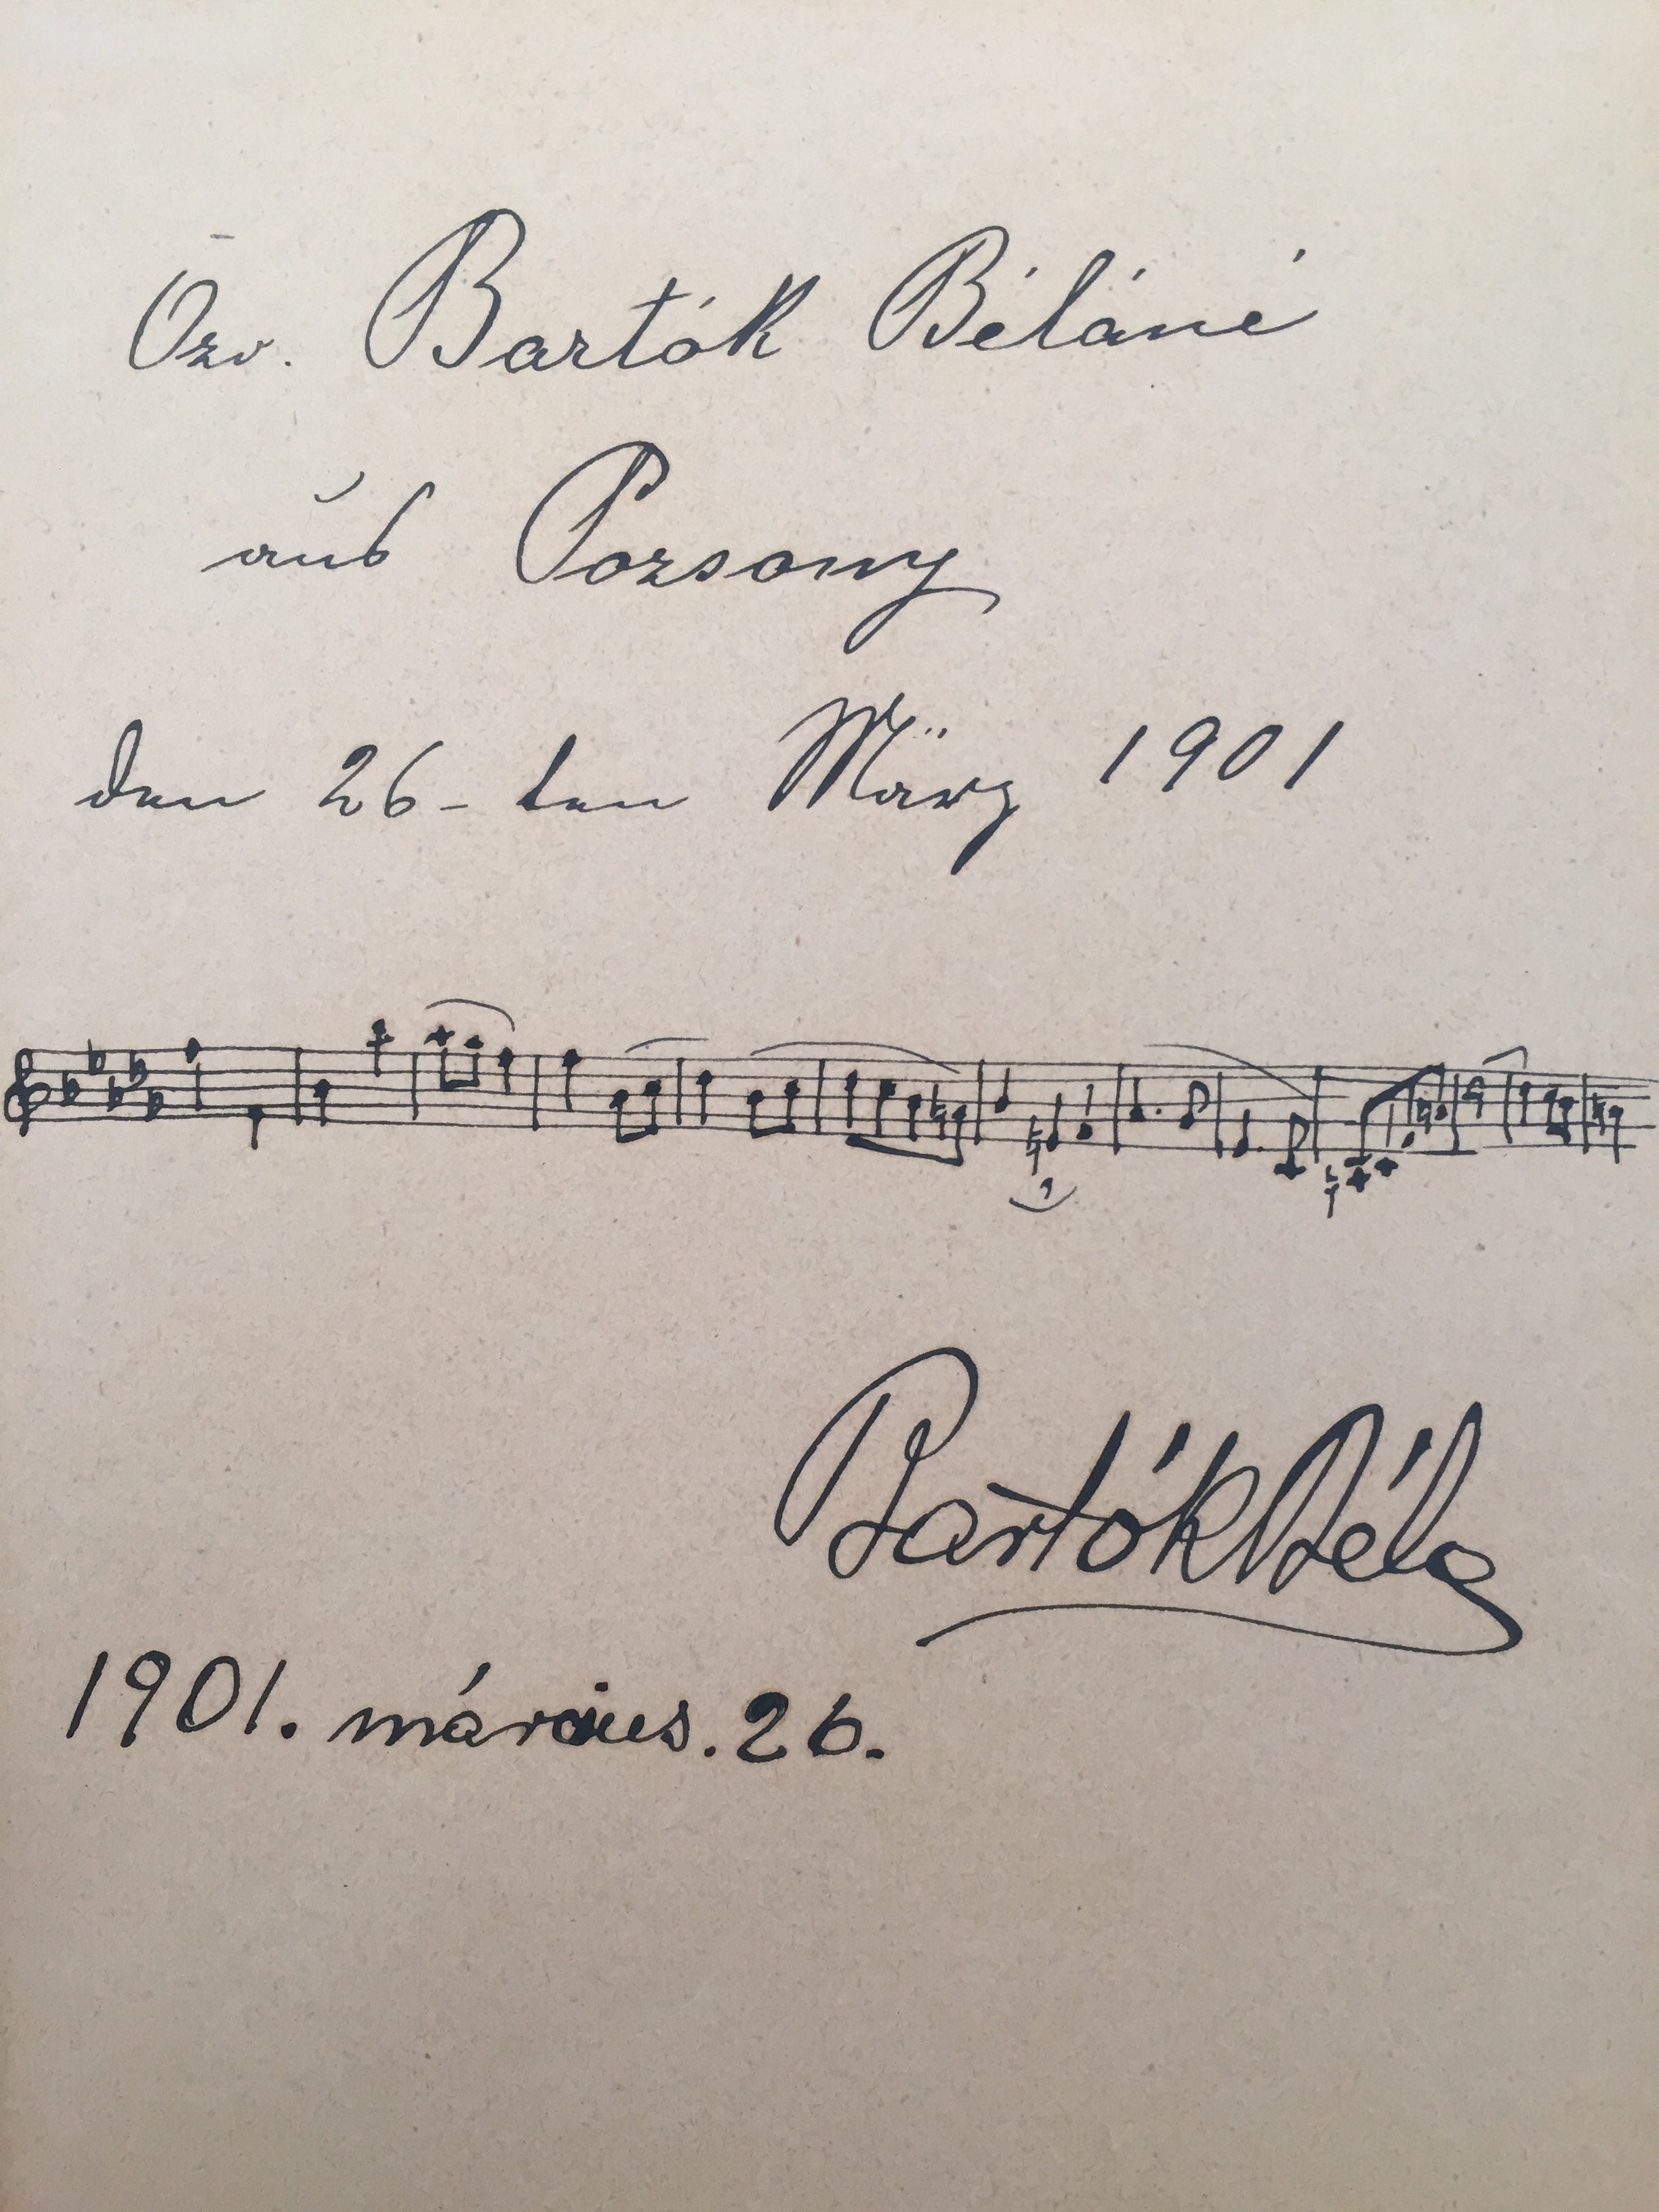 Özv. Bartók Béláné
aus Pozsony
den 26-ten März 1901
Bartók Béla
1901. március. 26.